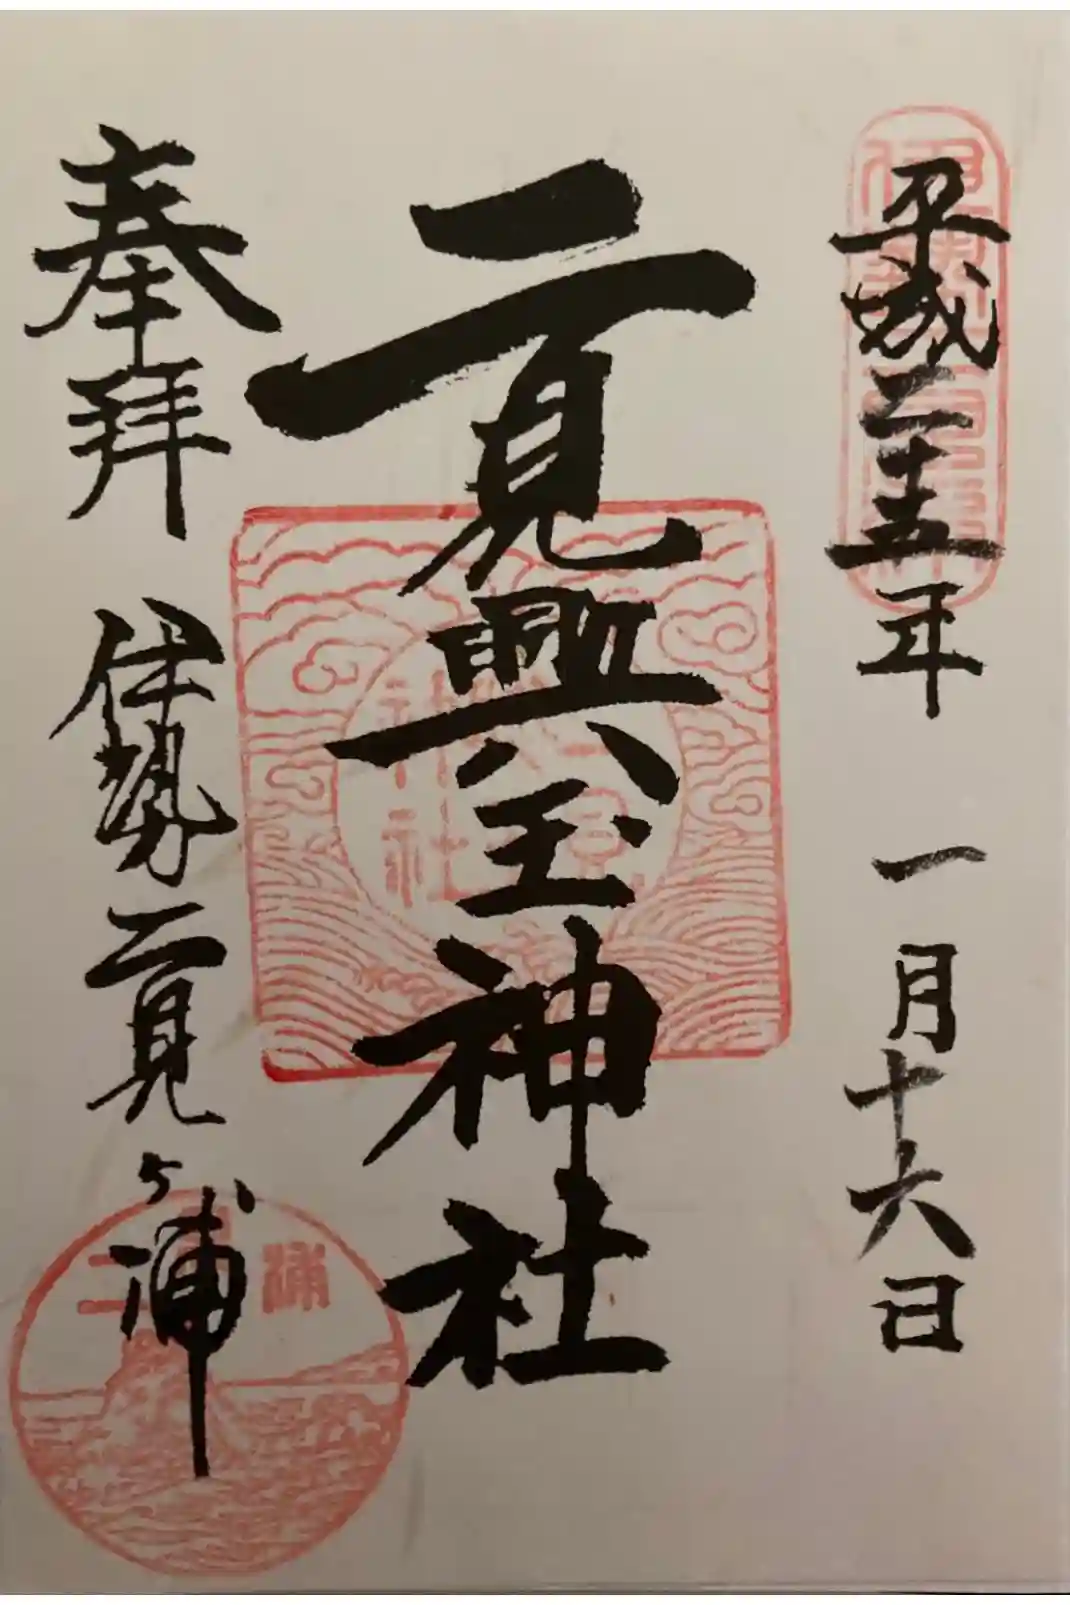 平成二十五年 一月十六日
二見興玉神社
奉拝 伊勢二見ヶ浦
二見浦